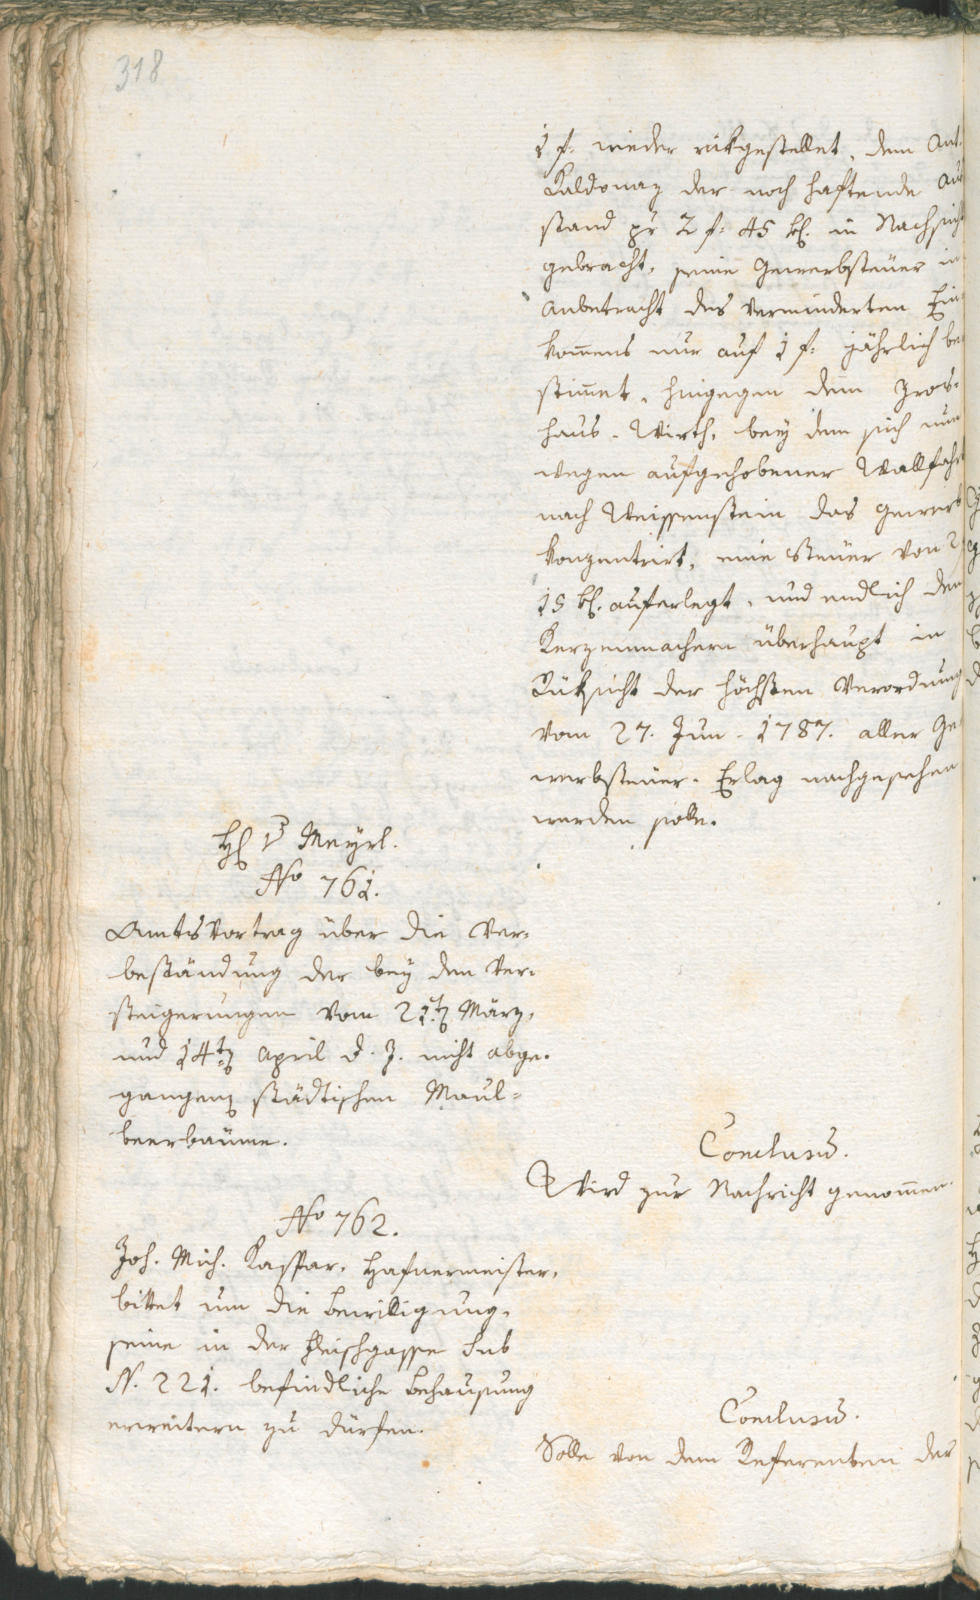 318
1 f: wieder rükgestellet, dem Ant.
Kaldonaz der noch haftende Aus
stand pr 2 f: 45 kr. in Nachsicht
gebracht, seine Gewerbsteuer in
Anbetracht des verminderten Ein
kom̄ens nur auf 1 f: jährlich be
stim̄et, hingegen dem
haus-Wirth, bey dem sich nun
wegen aufgehobener Wallfahrt
nach Weissenstein das Gewerb
konzentrirt, eine Steuer von 2
15 kr. auferlegt, und endlich den
Kerzenmachern überhaupt in
Rüksicht der höchsten Verordnung
vom 27. Jun. 1787. aller Ge
werbsteuer-Erlag nachgesehen
werden solle.
H v Meyrl.
No 761.
Amtsvortrag über die Ver-
beständung der bey den Ver-
steigerungen vom 21t März,
und 14t April d. J. nicht abge-
gangen städtischen Maul-
beerbäume.
Conclusum.
Wird zur Nachricht genom̄en.
No 762.
Joh. Mich. Kaspar, Hafnermeister,
bittet um die Bewilligung,
seine in der Fleischgasse sub
N. 221. befindliche Behausung
erweitern zu dürfen.
Conclusum.
Solle von dem Referenten der